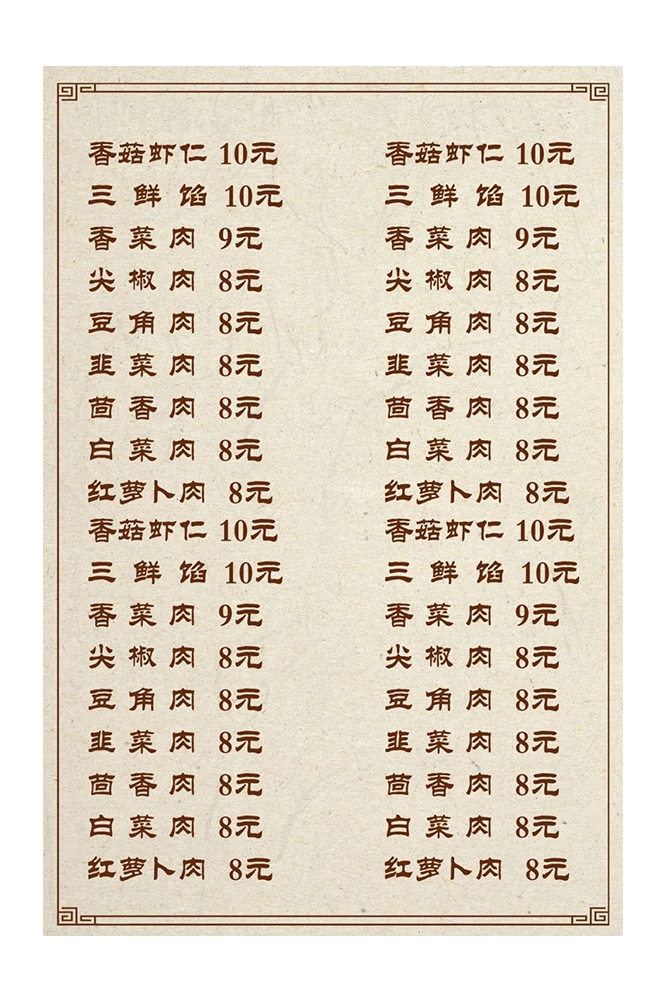 香菇虾仁 10元
三鲜馅 10元
香菜肉 9元
尖椒肉 8元
豆角肉 8元
韭菜肉 8元
茴香肉 8元
白菜肉 8元
红萝卜肉 8元
香菇虾仁 10元
三鲜馅 10元
香菜肉 9元
尖椒肉 8元
豆角肉 8元
韭菜肉 8元
茴香肉 8元
白菜肉 8元
红萝卜肉 8元
香菇虾仁 10元
三鲜馅 10元
香菜肉 9元
尖椒肉 8元
豆角肉 8元
韭菜肉 8元
茴香肉 8元
白菜肉 8元
红萝卜肉 8元
香菇虾仁 10元
三鲜馅 10元
香菜肉 9元
尖椒肉 8元
豆角肉 8元
韭菜肉 8元
茴香肉 8元
白菜肉 8元
红萝卜肉 8元